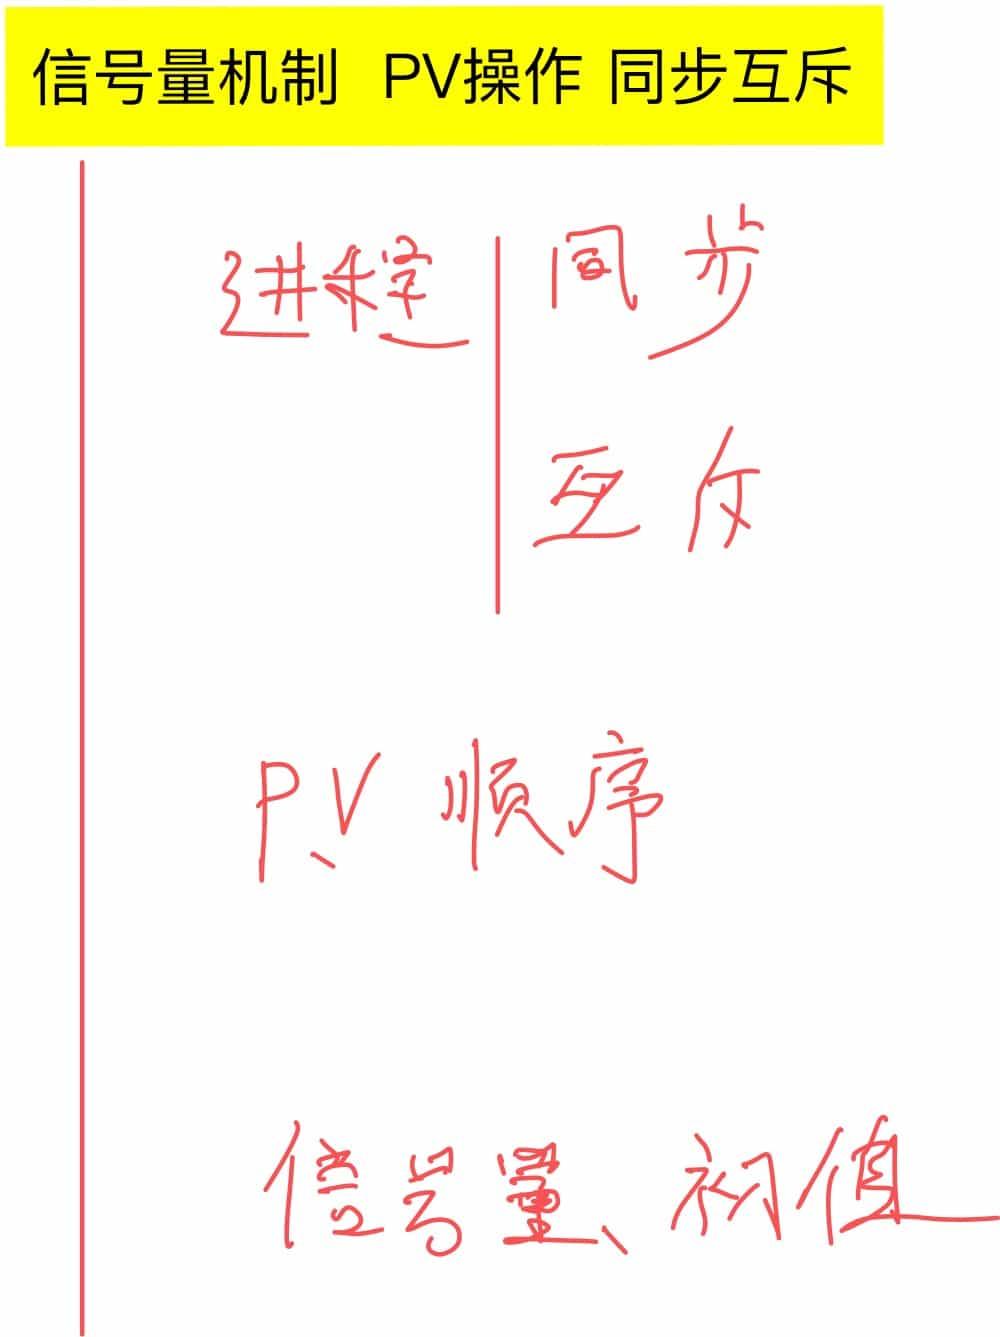 信号量机制 PV操作 同步互斥
进程 同步
互斥
P、V 顺序
信号量、初值